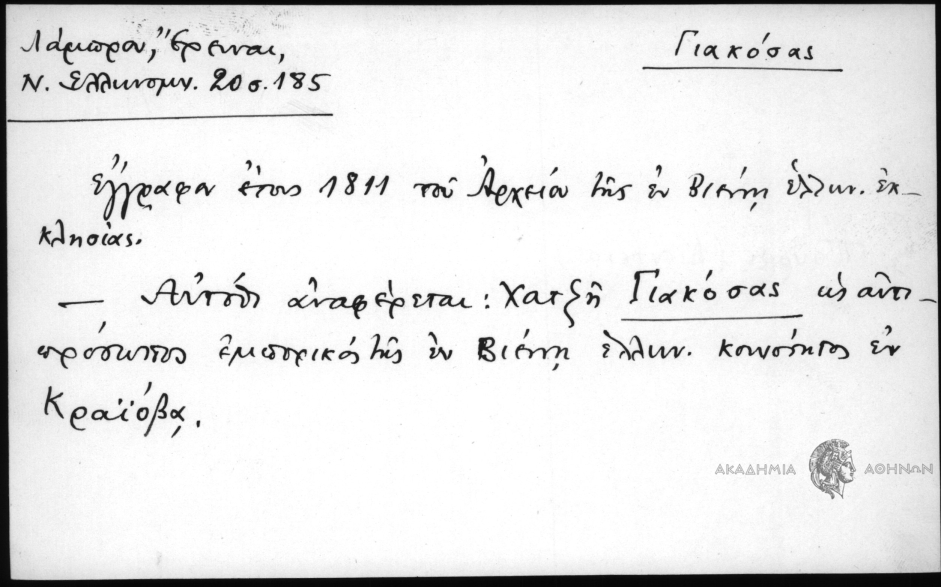 Λάμπρου, Ἔρευναι,
Ν. Ἑλληνομν. 20 σ. 185
Γιακόσας
ἔγγραφον ἔτους 1811 τοῦ Ἀρχείου τῆς ἐν Βιέννῃ ἑλλην. ἐκ-
κλησίας.
— Αὐτόθι ἀναφέρεται: Χατζῆ Γιακόσας ὡς ἀντι-
πρόσωπος ἐμπορικός τῆς ἐν Βιέννῃ ἑλλην. κοινότητος ἐν
Κραϊόβᾳ.
ΑΚΑΔΗΜΙΑ ΑΘΗΝΩΝ